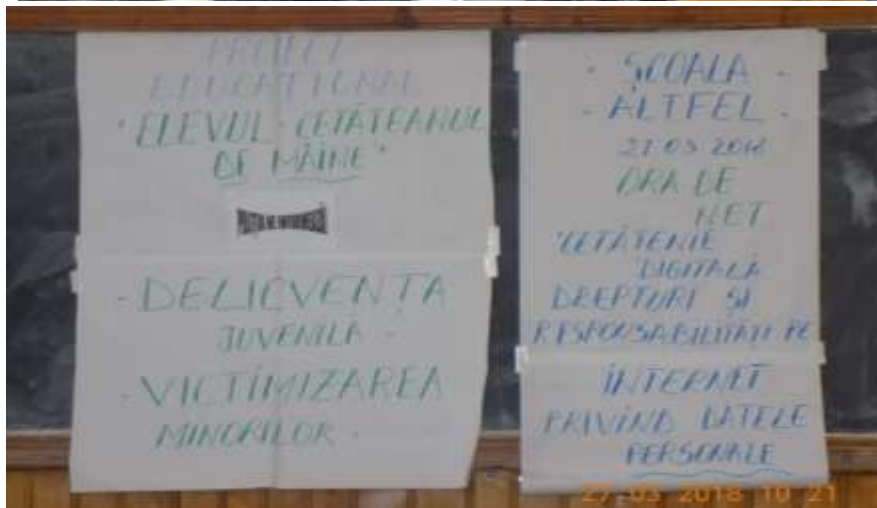 PROIECT
EDUCAȚIONAL
"ELEVUL - CETĂȚEANUL
DE MÂINE"
POLIȚIA TE INFORMEAZĂ
- DELICVENȚA
JUVENILĂ -
- VICTIMIZAREA
MINORILOR -
- ȘCOALA -
- ALTFEL -
27 03 2018
ORA DE
NET
"CETĂȚENIE
DIGITALĂ
DREPTURI ȘI
RESPONSABILITĂȚI PE
INTERNET
PRIVIND DATELE
PERSONALE
27 03 2018 10 21